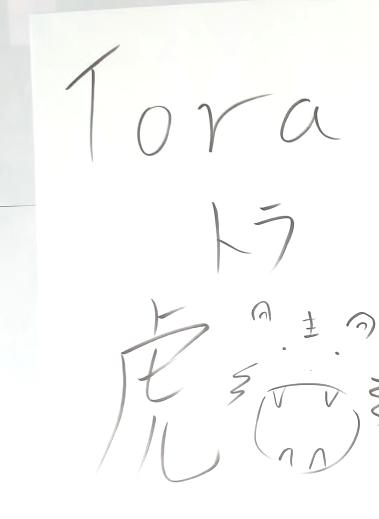 Tora
トラ
虎